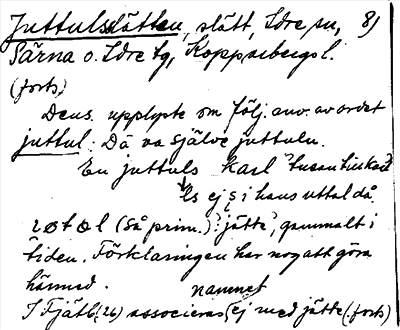 Juttulslätten, slätt, Idre sn, 8)
Särna o. Idre tg, Kopparbergs l.
(forts.)
Dens. upplyste om följ. anv. av ordet
juttul: Dä va själve juttuln.
En juttuls karl
ls ej ş i hans uttal då.
(så prim.): jätte, gammalt i
tiden. Förklaringen har nog att göra
härmed. namnet
I Fjätb. (26) associeras ej med jätte (forts)